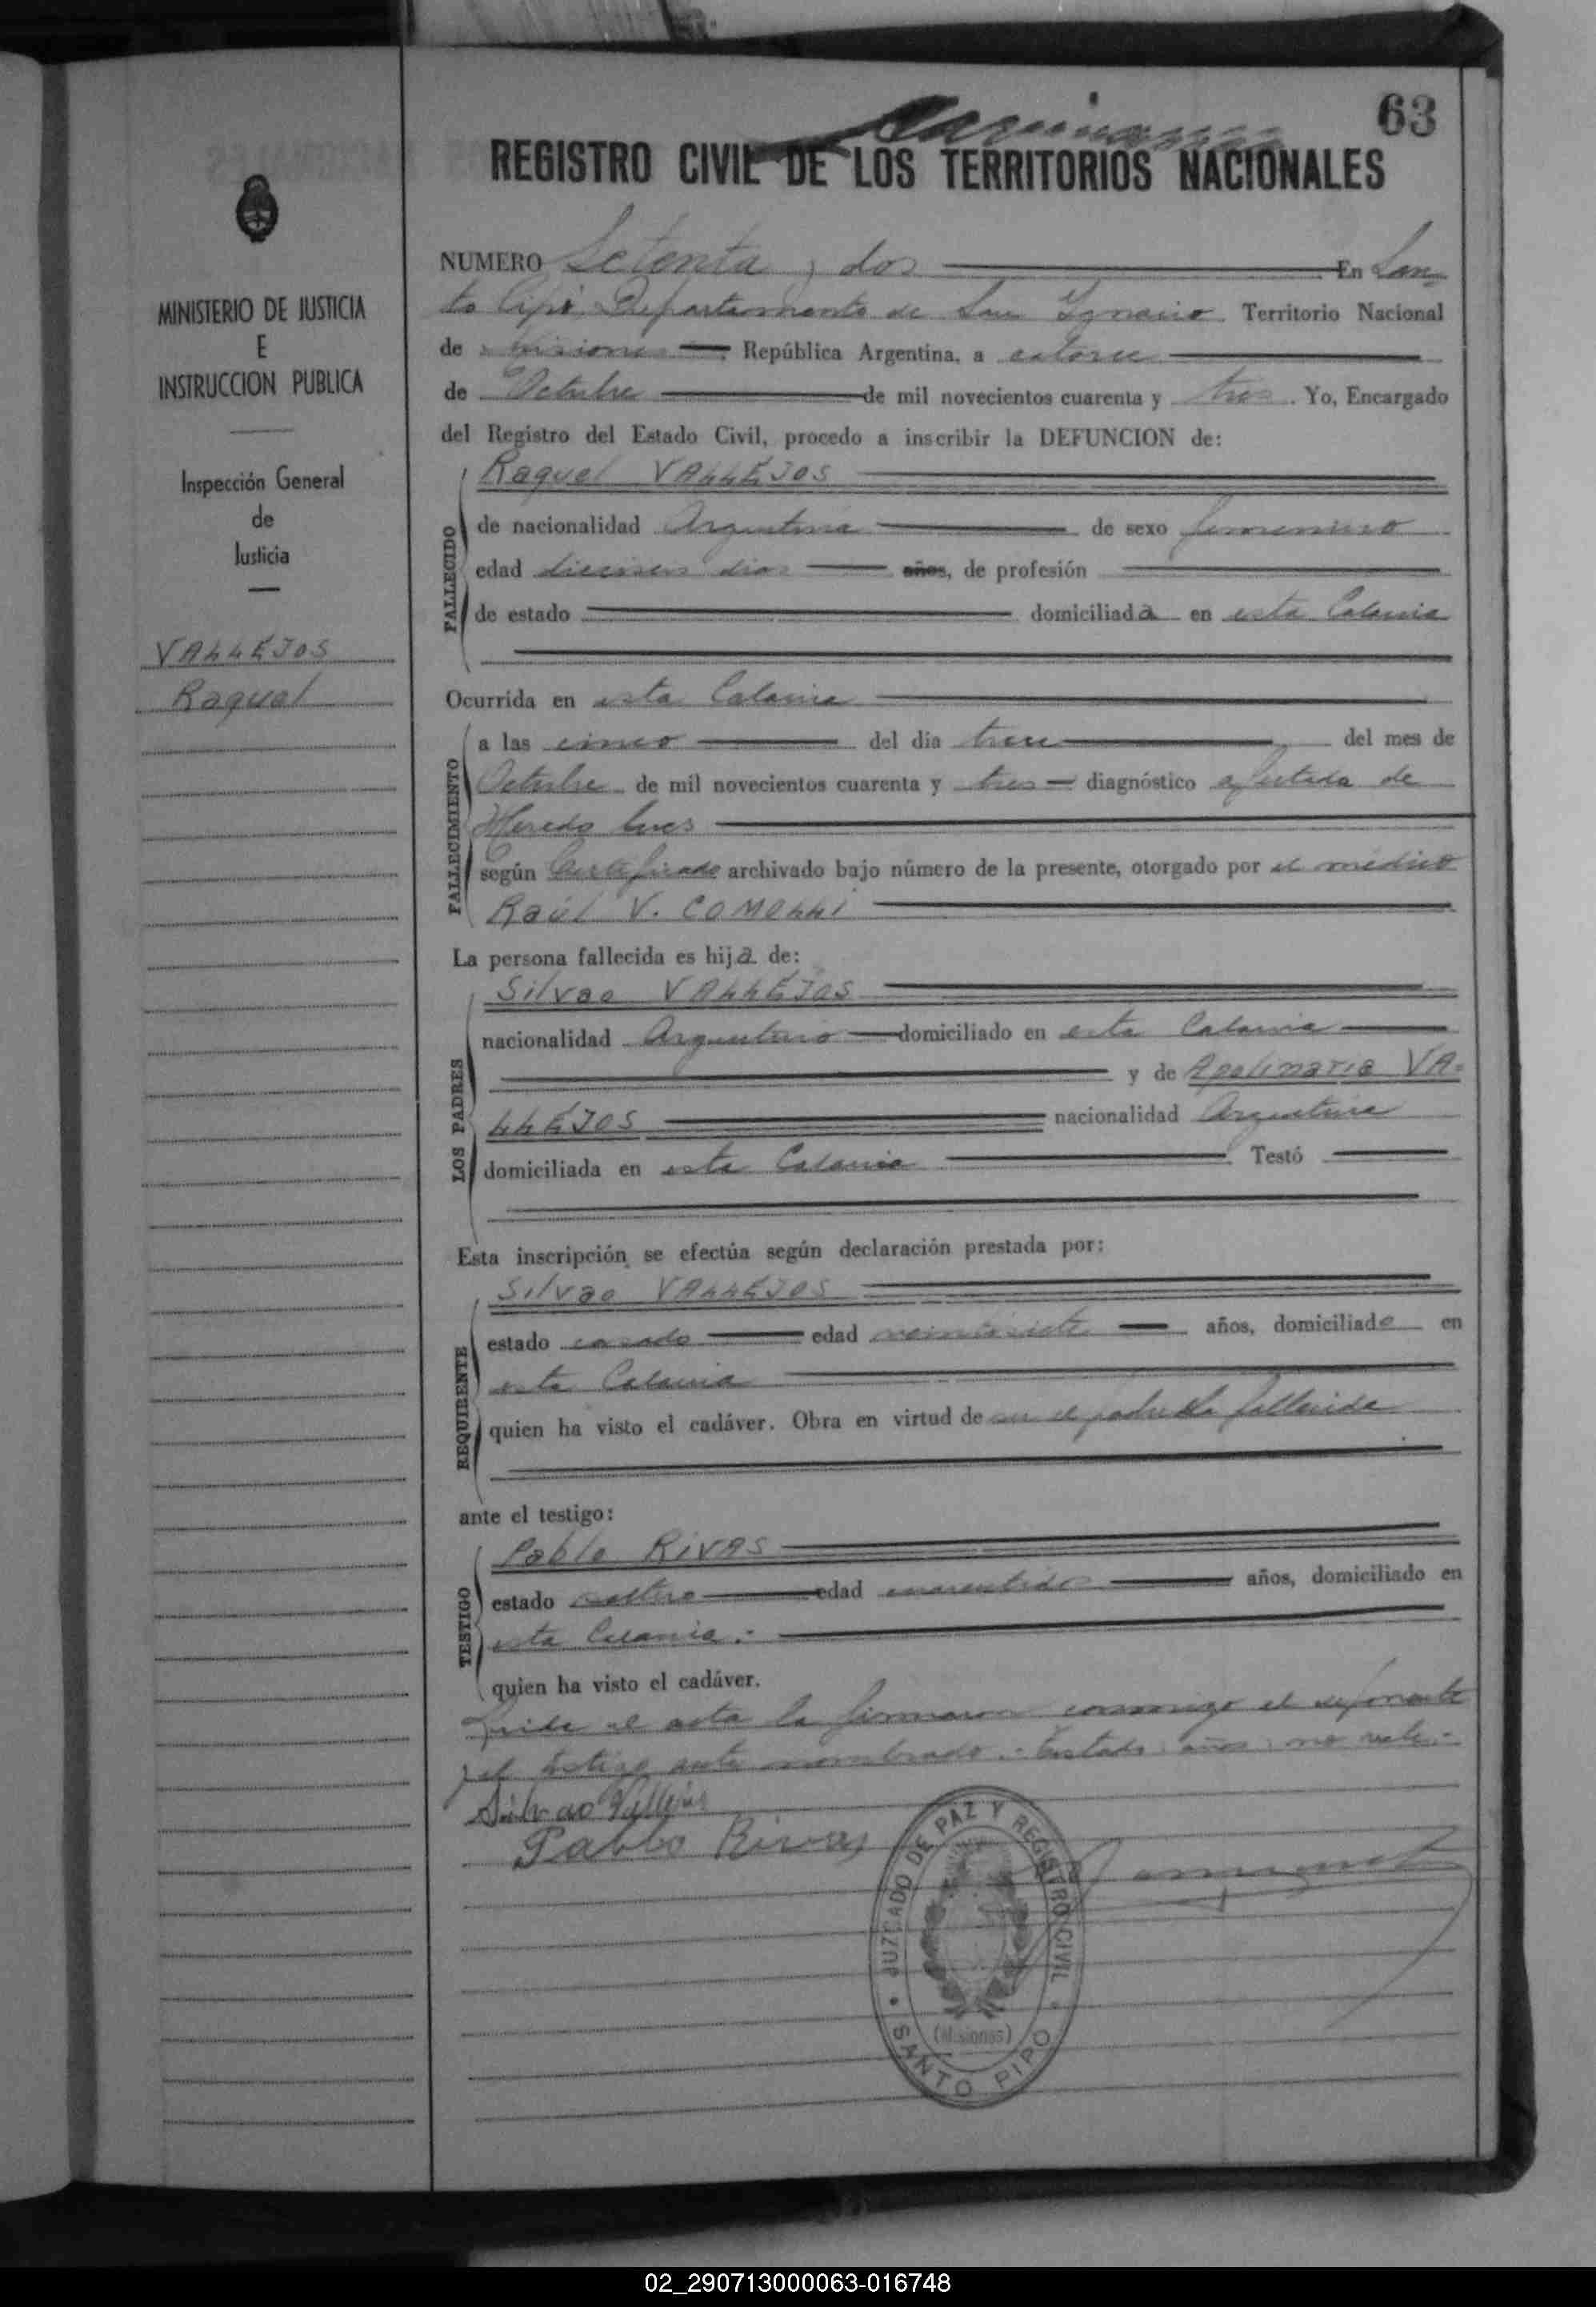 63
REGISTRO CIVIL DE LOS TERRITORIOS NACIONALES
MINISTERIO DE JUSTICIA
E
INSTRUCCION PUBLICA
Inspección General
de
Justicia
VALLEJOS
Raquel
NUMERO Setenta y dos En San-
to Pipó Departamento de San Ignacio Territorio Nacional
de Misiones República Argentina, a catorce
de Octubre de mil novecientos cuarenta y tres. Yo, Encargado
del Registro del Estado Civil, procedo a inscribir la DEFUNCION de:
FALLECIDO
Raquel VALLEJOS
de nacionalidad Argentina de sexo femenino
edad dieciseis dias años, de profesión
de estado domiciliada en esta Colonia
Ocurrida en esta Colonia
FALLECIMIENTO
a las cinco del dia trece del mes de
Octubre de mil novecientos cuarenta y tres diagnóstico afectada de
Heredo lues
según Certificado archivado bajo número de la presente, otorgado por el médico
Raúl V. COMOLLI
La persona fallecida es hija de:
LOS PADRES
Silvao VALLEJOS
nacionalidad Argentino domiciliado en esta Colonia
y de Apolinaria VA-
LLEJOS nacionalidad Argentina
domiciliada en esta Colonia Testó
Esta inscripción se efectúa según declaración prestada por:
REQUIRENTE
Silvao VALLEJOS
estado casado edad veintisiete años, domiciliado en
esta Colonia
quien ha visto el cadáver. Obra en virtud de ser el padre de la fallecida
ante el testigo:
TESTIGO
Pablo RIVAS
estado soltero edad cuarentidos años, domiciliado en
esta Colonia.-
quien ha visto el cadáver.
Leida el acta la firmaron conmigo el exponente
y el testigo ante nombrado.- Testado: años: no vale.-
Silvao Vallejos
Pablo Rivas
JUZGADO DE PAZ Y REGISTRO CIVIL
(Misiones)
SANTO PIPO
02_290713000063-016748